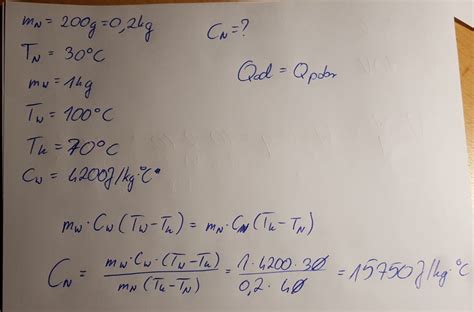 m_N = 200g = 0,2kg
C_N = ?
T_N = 30°C
Q_od = Q_pobr
m_w = 1kg
T_w = 100°C
T_k = 70°C
C_w = 4200J/kg·°C
m_w · C_w (T_w - T_k) = m_N · C_N (T_k - T_N)
C_N = \frac{m_w · C_w · (T_w - T_k)}{m_N (T_k - T_N)} = \frac{1 · 4200 · 30}{0,2 · 40} = 15750J/kg·°C